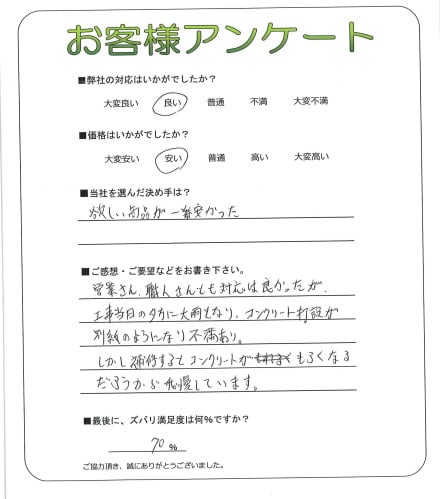 お客様アンケート
■弊社の対応はいかがでしたか?
大変良い 良い 普通 不満 大変不満
■価格はいかがでしたか?
大変安い 安い 普通 高い 大変高い
■当社を選んだ決め手は?
欲しい商品が一番安かった
■ご感想・ご要望などをお書き下さい。
営業さん、職人さんとも対応は良かったが、
工事当日の夕方に大雨となり、コンクリート打設が
別紙のようになり不満あり。
しかし補修するとコンクリートがもろくなる
だろうから我慢しています。
■最後に、ズバリ満足度は何%ですか?
70 %
ご協力頂き、誠にありがとうございました。